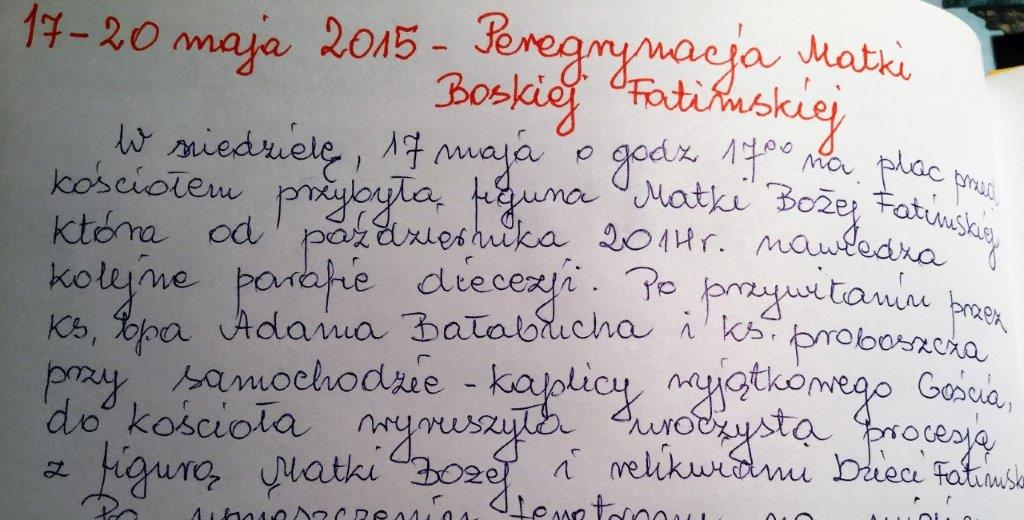 17-20 maja 2015 - Peregrynacja Matki
Boskiej Fatimskiej
W niedzielę, 17 maja o godz 17⁰⁰ na plac przed
kościołem przybyła figura Matki Bożej Fatimskiej
która od października 2014r. nawiedza
kolejne parafie diecezji. Po przywitaniu przez
ks. bpa Adama Bałabucha i ks. proboszcza
przy samochodzie - kaplicy wyjątkowego Gościa,
do kościoła wyruszyła uroczysta procesja
z figurą Matki Bożej i relikwiami Dzieci Fatimsk
Po